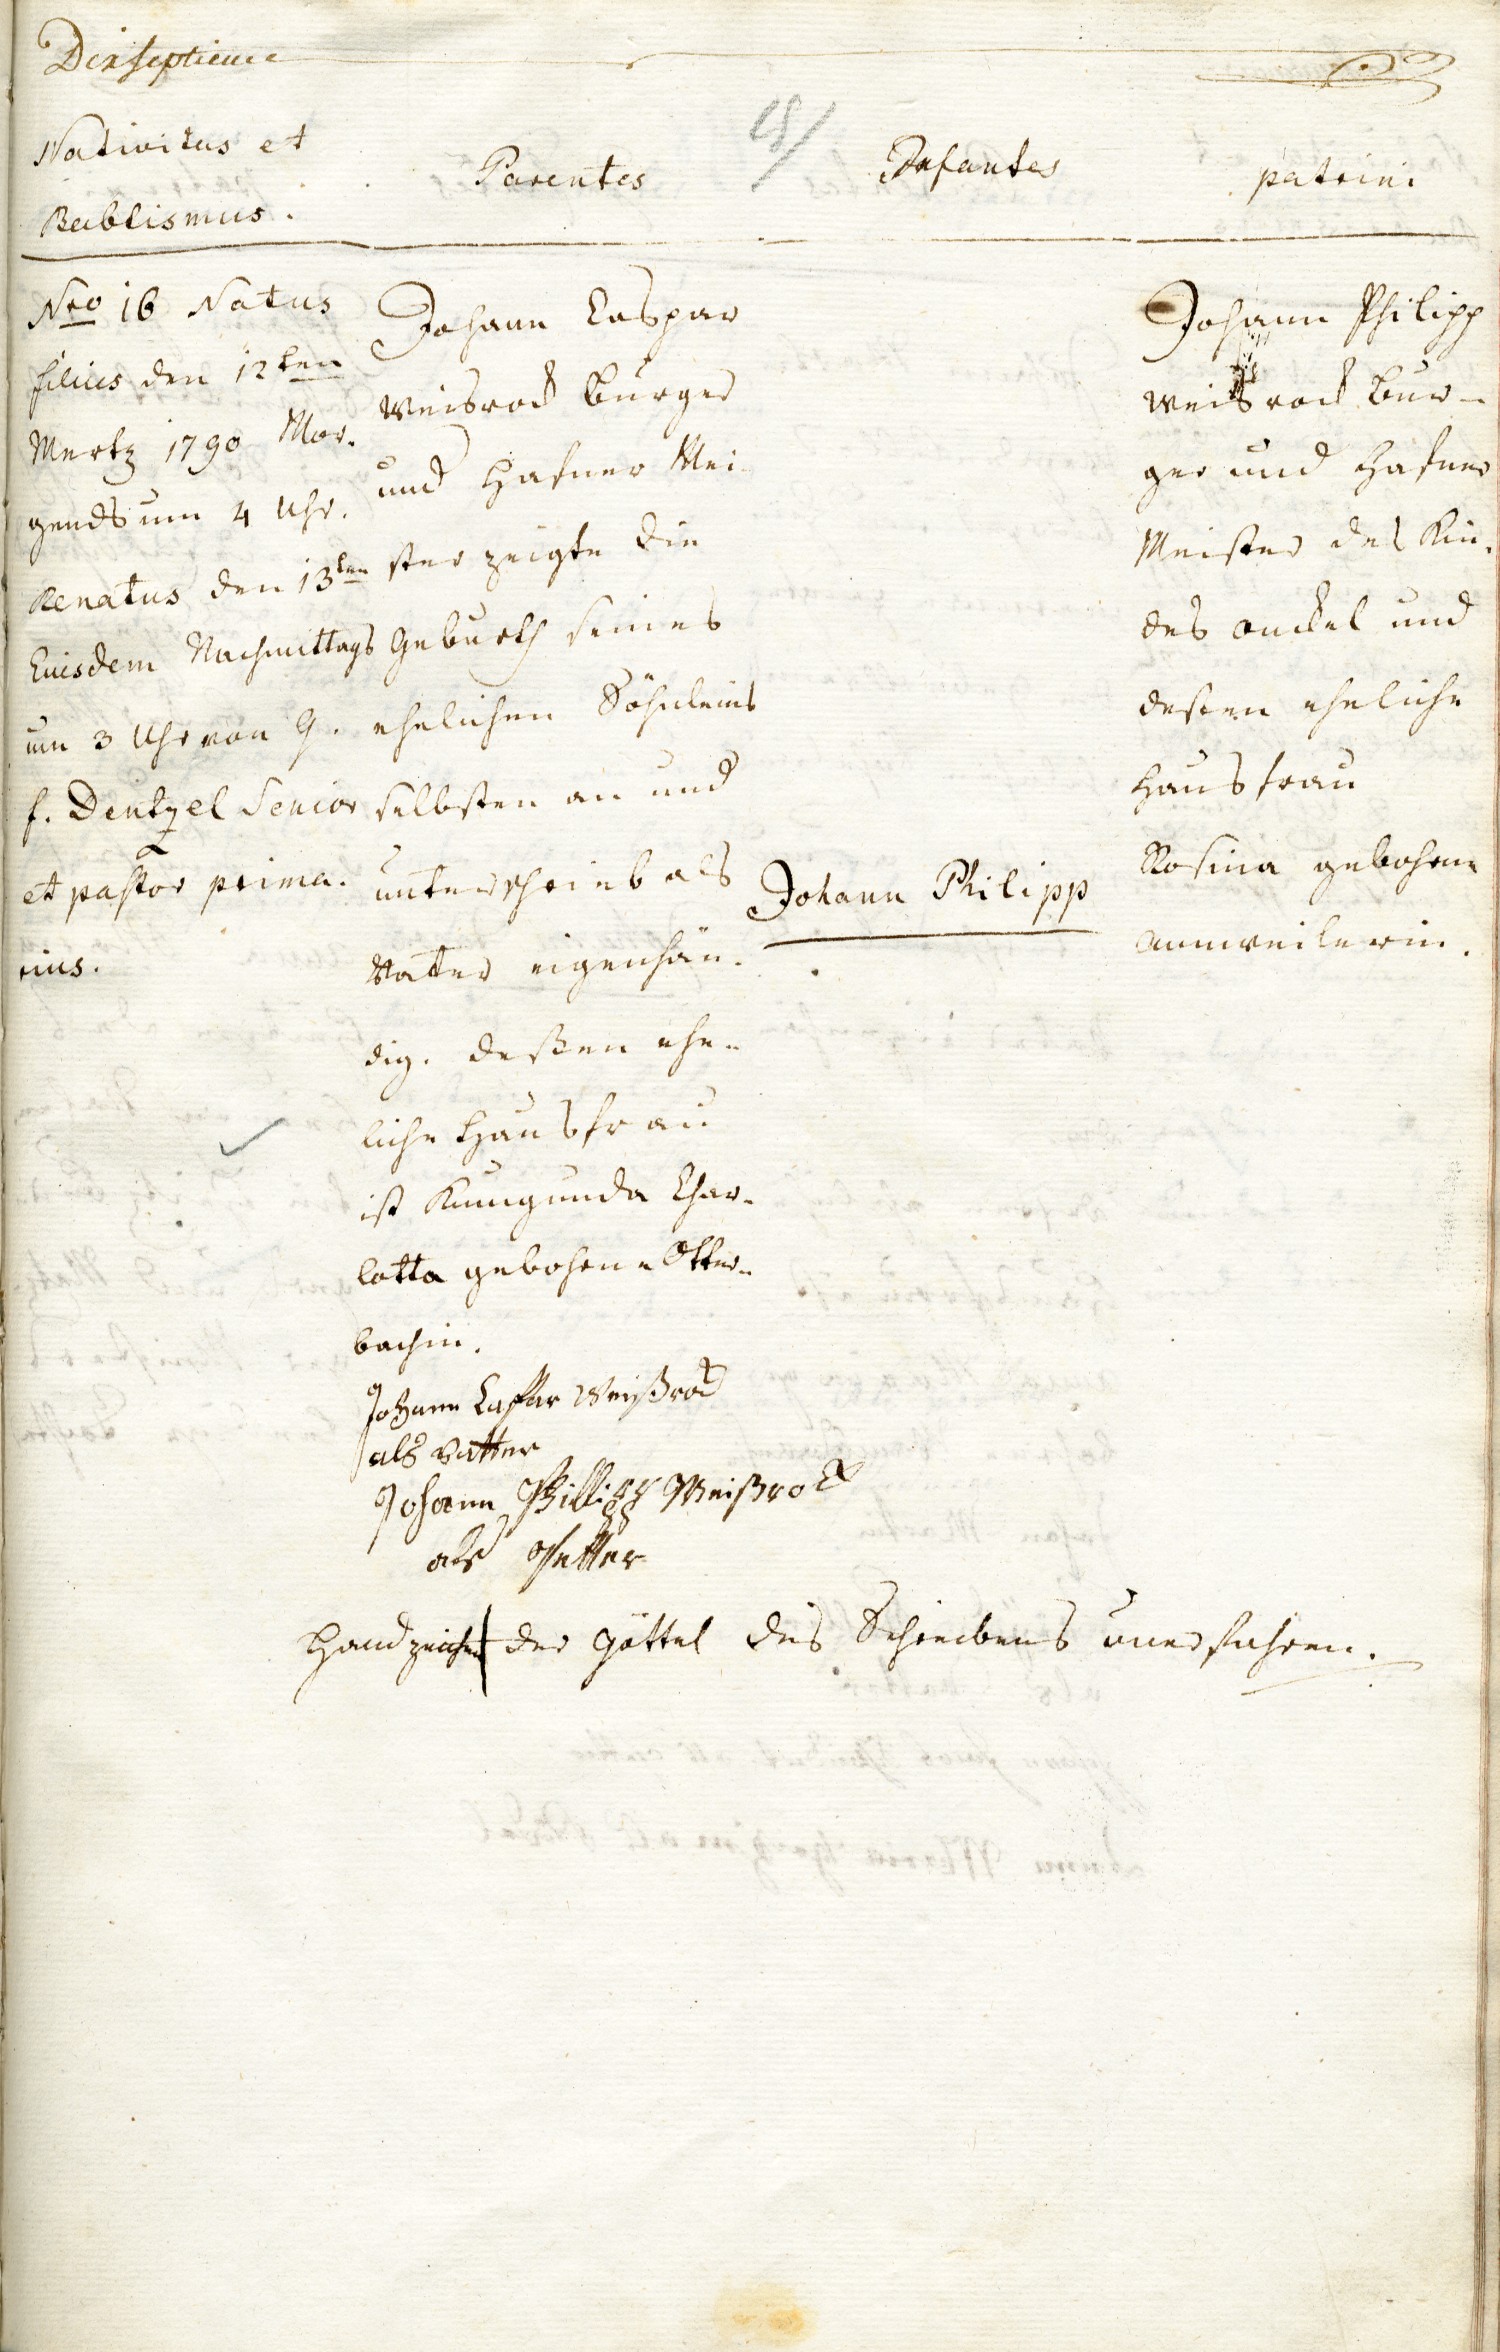 Dixseptieme
Nativitas et
Babtismus.
Parentes
Infantes
patrini
Nro 16 Natus
filius den 12ten
Mertz 1790 Mor-
gends um 4 Uhr.
Renatus den 13ten
Euisdem Nachmittags
um 3 Uhr von G.
f. Dentzel Senior
et pastor prima-
rius.
Johann Caspar
Weisrock burger
und Hafner Mei-
ster zeigte die
Geburth seines
ehelichen Söhnleins
selbsten an und
unterschrieb als
Vater eigenhän-
dig. deßen ehe-
liche Hausfrau
ist Kunigunda Char-
lotta gebohrne Otter-
bachin.
Johann Caspar Weißrock
als vatter
Johann Phillipp Weißrock
als Petter
Johann Philipp
Johann Philipp
Weisrock bur-
ger und Hafner
Meister des Kin-
des onckel und
deßen eheliche
Hausfrau
Rosina gebohrne
annweilerin.
Handzeichen + der Göttel des Schreibens unerfahren.